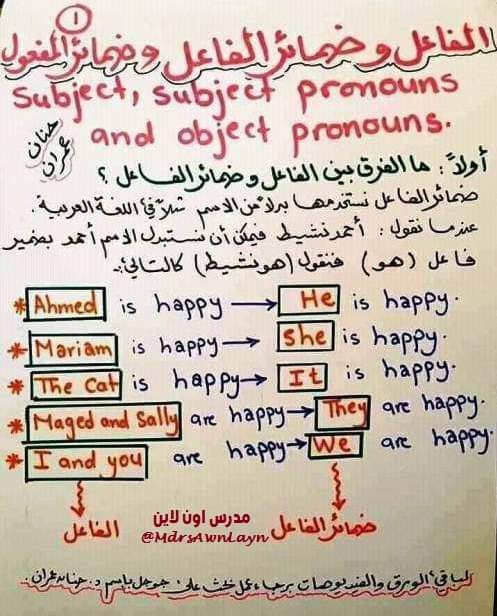 ١
الفاعل و ضمائر الفاعل و ضمائر المفعول
Subject, subject pronouns
and object pronouns.
حنان
عمران
أولاً: ما الفرق بين الفاعل و ضمائر الفاعل ؟
ضمائر الفاعل نستخدمها بدلاً من الاسم مثلاً في اللغة العربية.
عندما نقول: أحمد نشيط فيمكن أن نستبدل الاسم أحمد بضمير
فاعل (هو) فنقول (هو نشيط) كالتالي:-
* Ahmed is happy → He is happy.
* Mariam is happy → She is happy.
* The Cat is happy → It is happy.
* Maged and Sally are happy → They are happy.
* I and you are happy → We are happy.
الفاعل ضمائر الفاعل
مدرس اون لاين
@MdrsAwnLayn
لباقي الورق والفيديوهات برجاء عمل بحث على جوجل باسم د. حنان عمران.